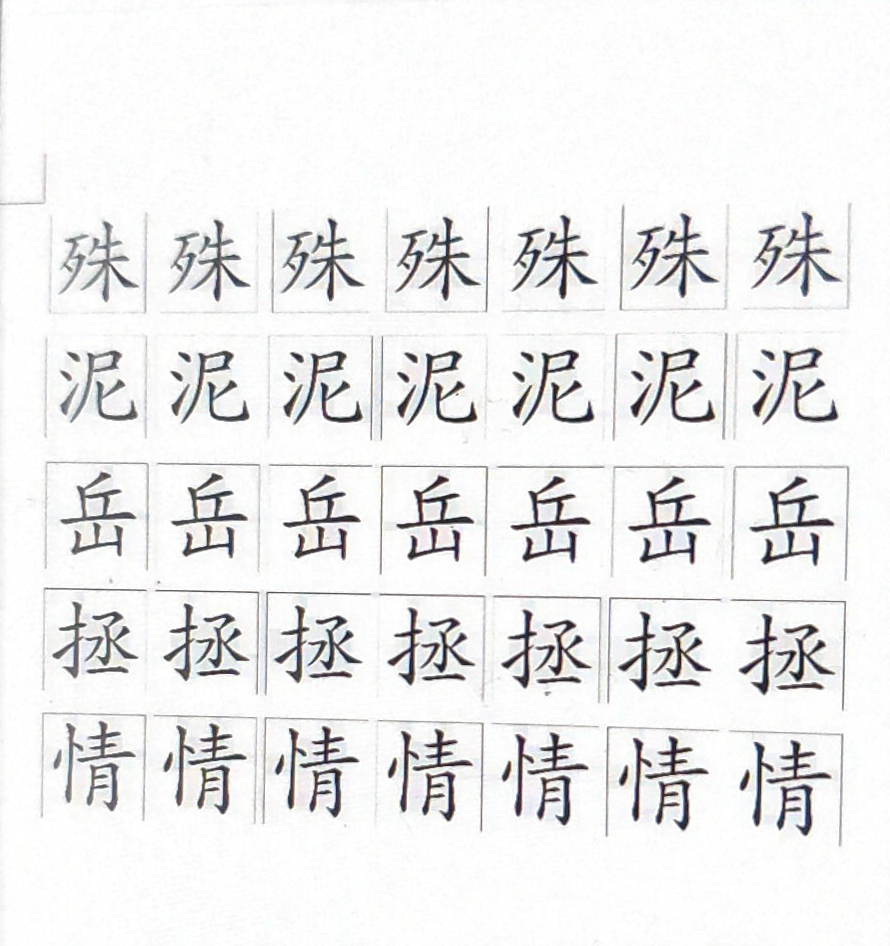 殊殊殊殊殊殊殊
泥泥泥泥泥泥泥
岳岳岳岳岳岳岳
拯拯拯拯拯拯拯
情情情情情情情